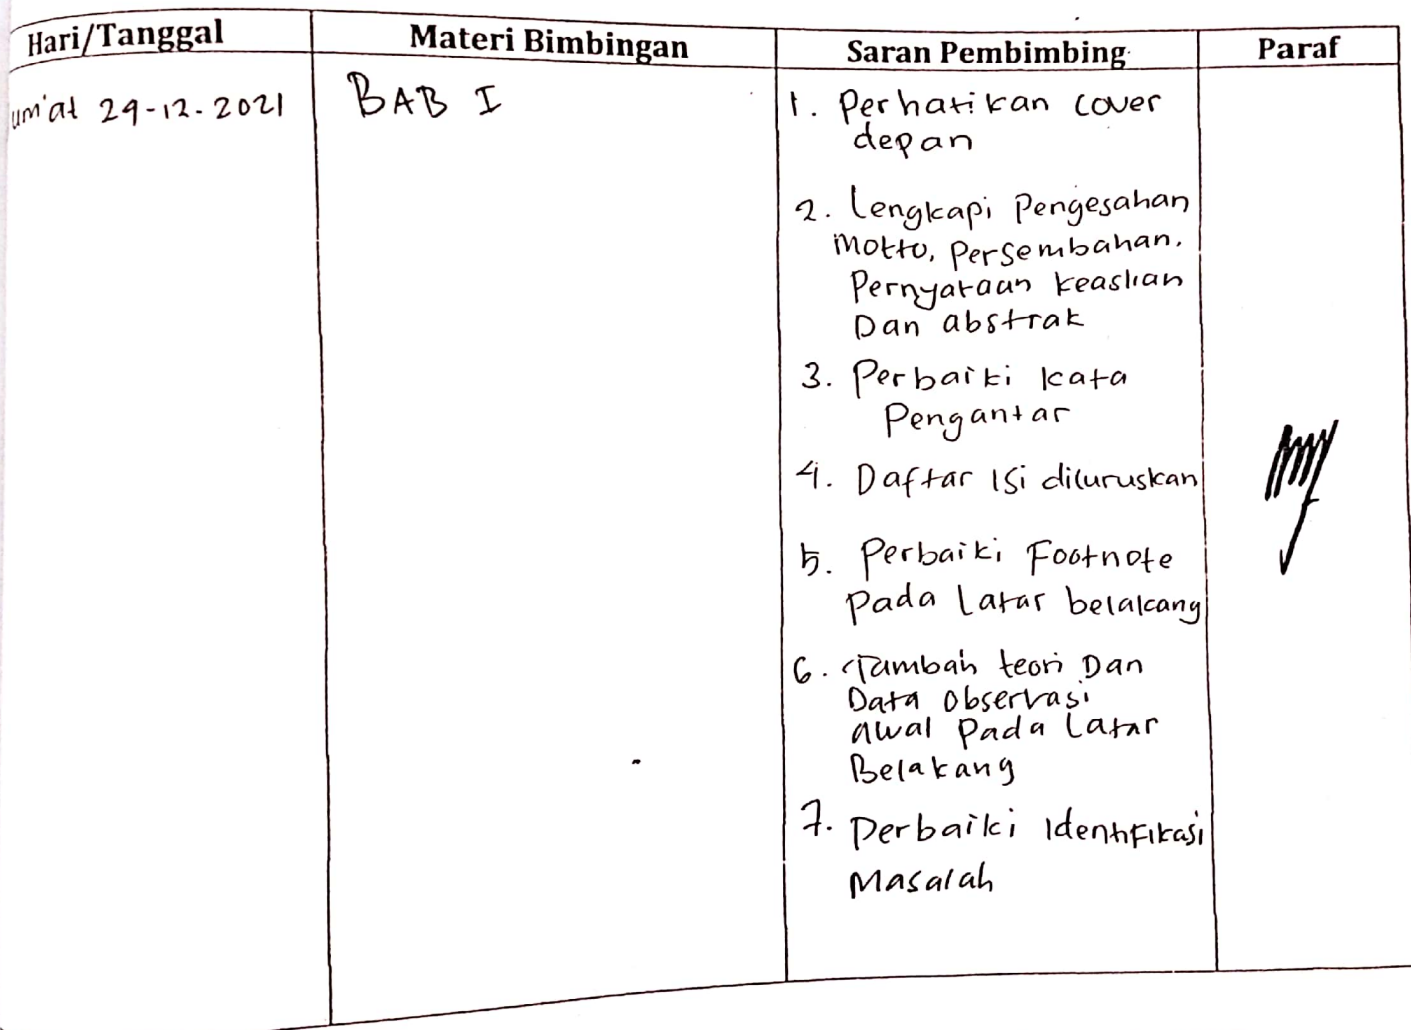 Hari/Tanggal
Materi Bimbingan
Saran Pembimbing
Paraf
um'at 29-12-2021
BAB I
1. Perhatikan cover
depan
2. Lengkapi Pengesahan
Motto, Persembahan.
Pernyataan keaslian
Dan abstrak
3. Perbaiki kata
Pengantar
4. Daftar isi diluruskan
5. Perbaiki Footnote
pada Latar belakang
6. Tambah teori Dan
Data observasi
awal Pada Latar
Belakang
7. Perbaiki Identifikasi
Masalah